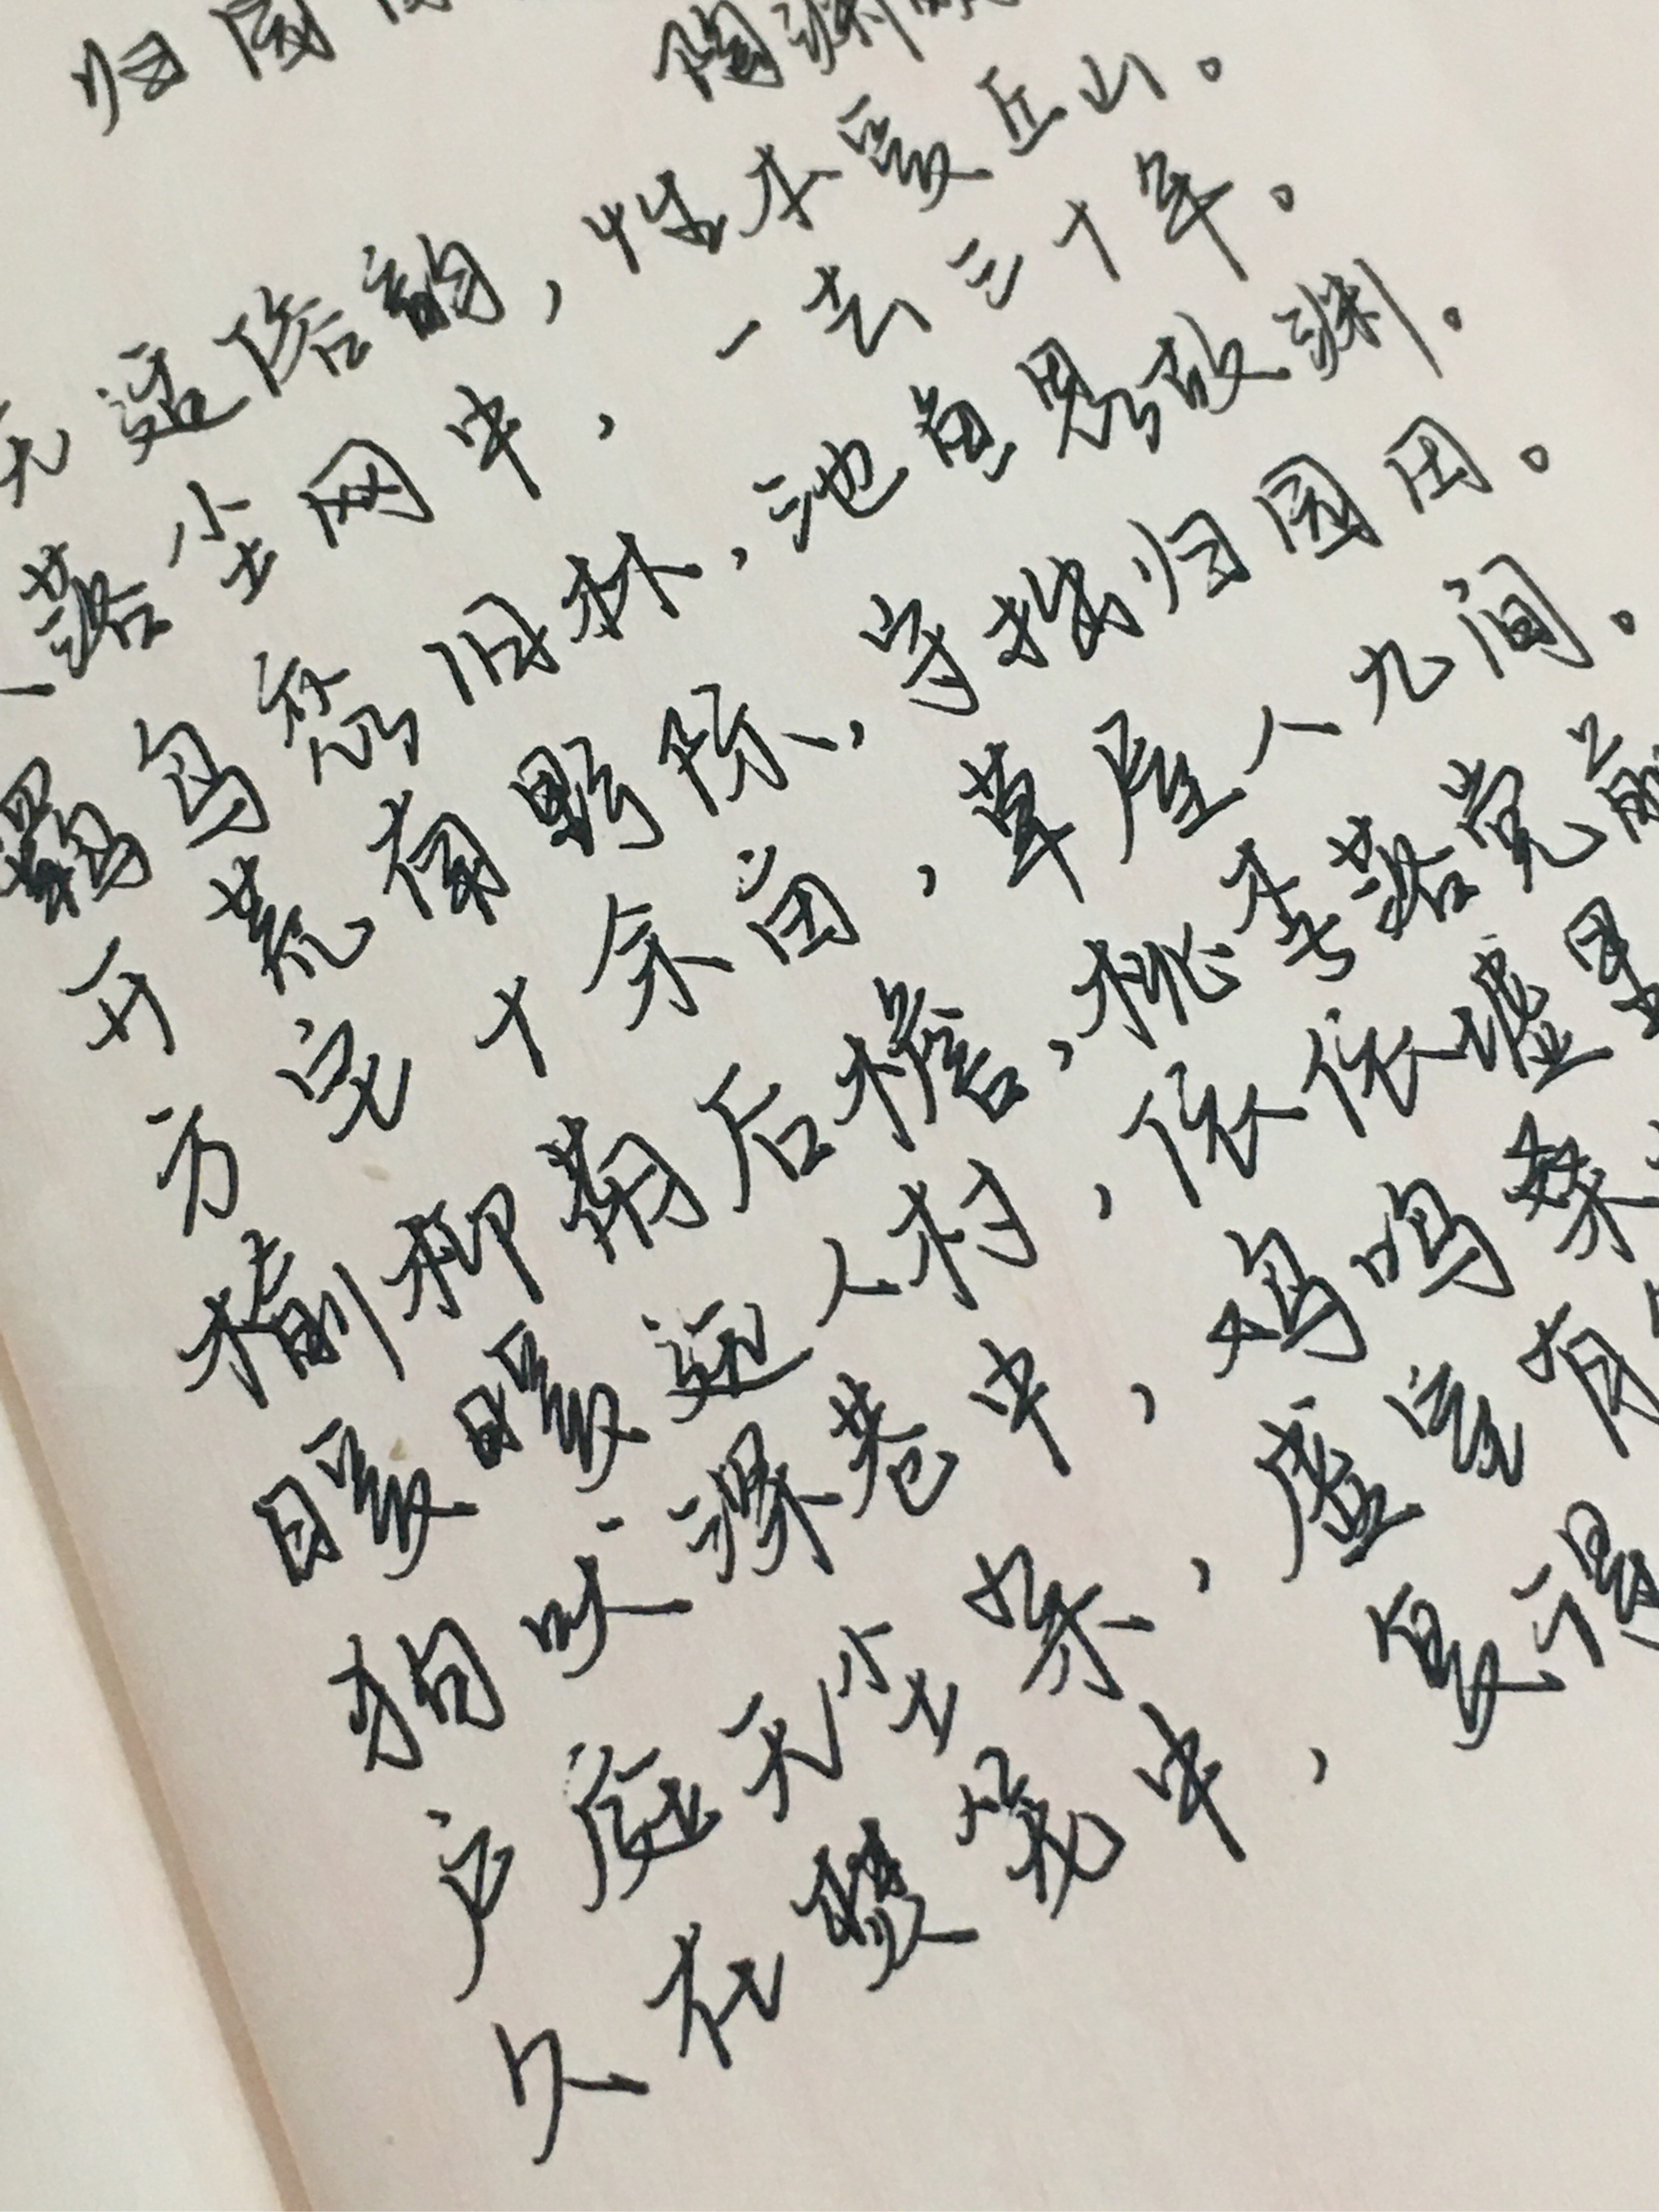 归园
陶渊
无适俗韵，性本爱丘山。
落尘网中，一去三十年。
羁鸟恋旧林，池鱼思故渊。
开荒南野际，守拙归园田。
方宅十余亩，草屋八九间。
榆柳荫后檐，桃李落党前
暧暧远人村，依依墟里
狗吠深巷中，鸡鸣桑
户庭无尘杂，虚室有
久在樊笼中，复得